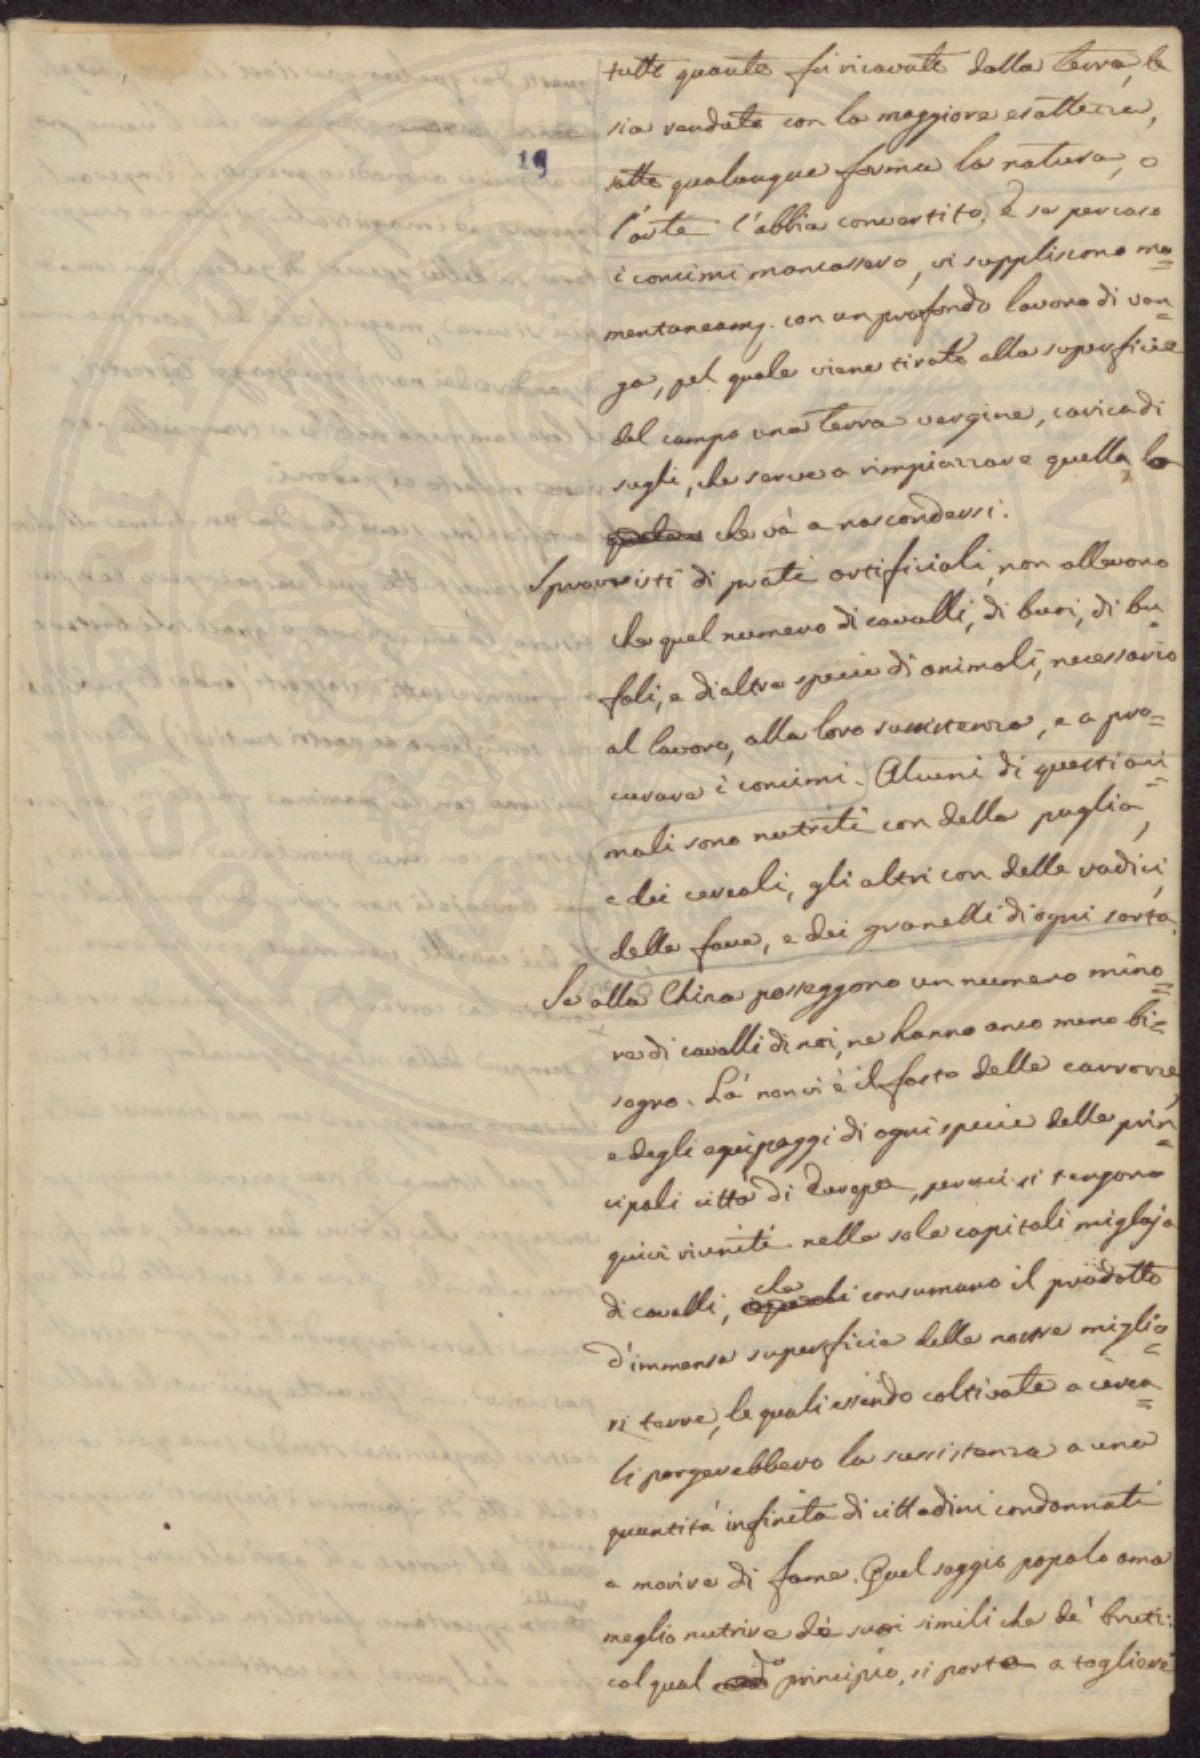 19
tutto quanto fu ricavato dalla terra, le
sia renduto con la maggiore esattezza,
sotto qualunque forma la natura, o
l'arte l'abbia convertito. E se percaso
i concimi mancassero, vi suppliscono mo=
mentaneamy. con un profondo lavoro di van=
ga, pel quale viene tirato alla superficie
del campo una terra vergine, carica di
sughi, che serve a rimpiazzare quella
che và a nascondersi.
Sprovvisti di prati artificiali, non allevano
che quel numero di cavalli, di buoi, di bu=
fali, e di altre specie di animali, necessario
al lavoro, alla loro sussistenza, e a pro=
curare i concimi. Alcuni di questi ani=
mali sono nutriti con della paglia,
e dei cereali, gli altri con delle radici,
delle fave, e dei granelli di ogni sorta.
Se alla China posseggono un numero mino=
re di cavalli di noi, ne hanno anco meno bi=
sogno. Là non vi è il fasto delle carrozze,
e degli equipaggi di ogni specie delle prin=
cipali città di Europa, percui si tengono
quivi riuniti nelle sole capitali migliaja
di cavalli, che consumano il prodotto
d'immensa superficie delle nostre miglio=
ri terre, le quali essendo coltivate a cerea=
li porgerebbero la sussistenza a una
quantità infinita di cittadini condannati
a morire di fame. Quel saggio popolo ama
meglio nutrire de' suoi simili che de' bruti:
col qual principio, si porta a togliere